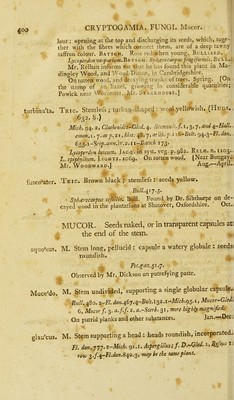 400 CRYPTOGAMIA, FUNGI. Mucor.
lour; opening at the top and discharging its seeds, which, toge-
ther with the fibres which connect them, are of a deep tawny
saffron colour. BATSCH. Rose red when young. BULLIARD.
Lycoperdon vesparium. BATSCH. Sphærocarpus
Mr. Relhan informs me that he has found this plant in Ma-
dingley Wood, and Wood Ditton, in Cambridgeshire.
On rotten wood, and decaying trunks of trees. Spring. [On
the stump of an hazel, growing in considerable quantities;
Powick near Worcester. Mr. STACKHOUSE.]
turbina'ta. TRIC. Stemless; turban-shaped; wool yellowish. (HUDS.
632. 8.)
Lycoperdon luteum. JACQ.
L. epiphyllum. LIGHTF. 1069. On rotten wood. [Near Bungay.
Mr. WOODWARD.] Aug.—April.
TRIC. Brown black; stemless: seeds yellow.
Bull. 417. 5.
Sphærocarpus sessilis. Bull. Found by Dr. Sibthorpe on de-
cayed wood in the plantations at Shotover, Oxfordshire. Oct.
MUCOR. Seeds naked, or in transparent capsules at
the end of the stem.
aquo'eus. M. Stem long, pellucid: capsule a watery globule: seeds
roundish.
Pet. gaz. 51. 7.
Observed by Mr. Dickson on putrefying paste.
Muce'do. M. Stem undivided, supporting a single globular capsule.
Bull. 480. 2-Fl. dan. 467. 4-Bolt. 132. 1-Mich. 95. 1, Mucor-Gled.
6, Mucor f. 3. a. f. f. 2. a.-Sterb. 31,
On putrid plants and other substances. Jan.—Dec.
glau'cus. M. Stem supporting a head: heads roundish, incorporated.
Fl. dan. 777. 2-Mich. 91. 1. Aspergillus; f. D.-Gled.
row 3. f. 4-Fl. dan. 842. 3, may be the same plant.